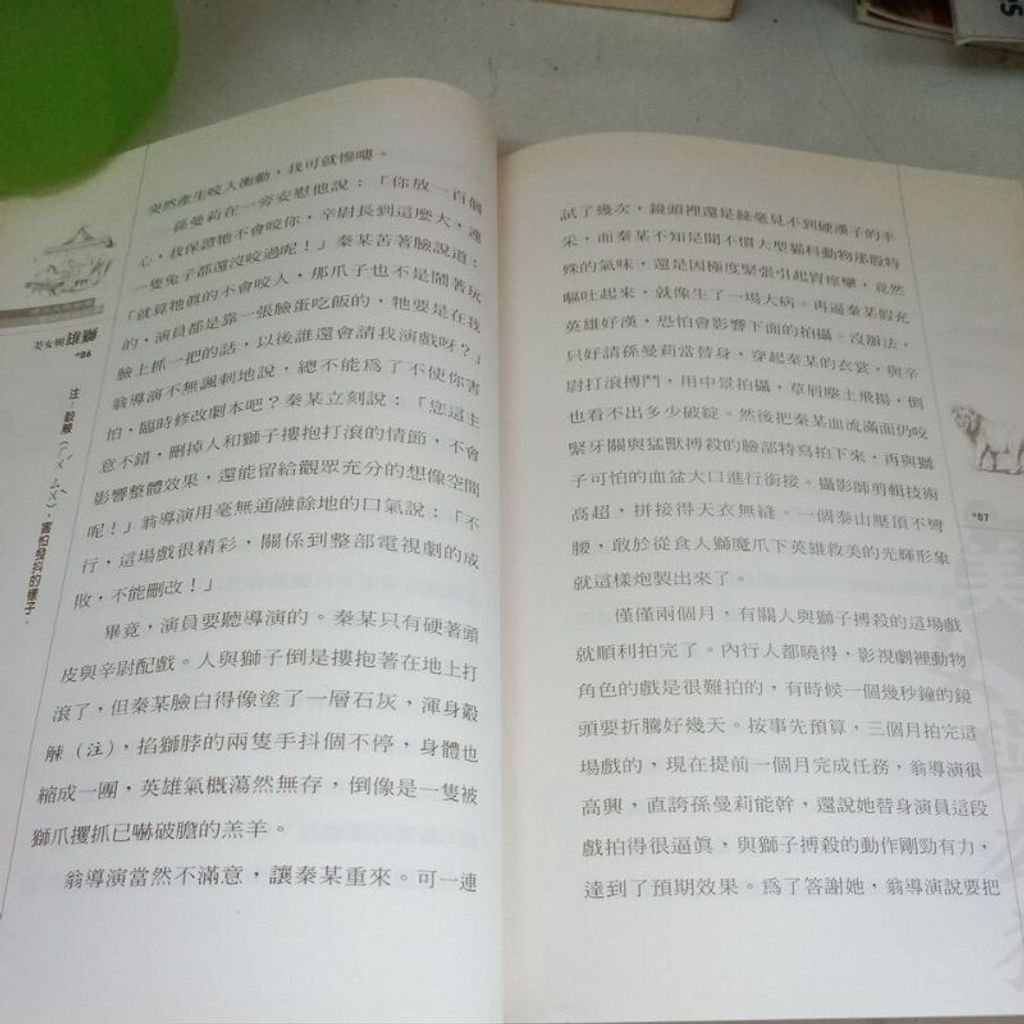 突然產生咬人衝動，我可就慘嘍。
孫曼莉在一旁安慰他說：「你放一百個
心，我保證牠不會咬你，辛尉長到這麼大，連
一隻兔子都還沒咬過呢！」秦某苦著臉說道：
「就算牠真的不會咬人，那爪子也不是鬧著玩
的，演員都是靠一張臉蛋吃飯的，牠要是在我
臉上抓一把的話，以後誰還會請我演戲呀？」
翁導演不無諷刺地說，總不能為了不使你害
怕，臨時修改劇本吧？秦某立刻說：「您這主
意不錯，刪掉人和獅子摟抱打滾的情節，不會
影響整體效果，還能留給觀眾充分的想像空間
呢！」翁導演用毫無通融餘地的口氣說：「不
行，這場戲很精彩，關係到整部電視劇的成
敗，不能刪改！」
畢竟，演員要聽導演的。秦某只有硬著頭
皮與辛尉配戲。人與獅子倒是摟抱著在地上打
滾了，但秦某臉白得像塗了一層石灰，渾身觳
觫（注），掐獅脖的兩隻手抖個不停，身體也
縮成一團，英雄氣概蕩然無存，倒像是一隻被
獅爪攫抓已嚇破膽的羔羊。
翁導演當然不滿意，讓秦某重來。可一連
美女與雄獅
*86
注：觳觫（ㄏㄨˊ ㄙㄨˋ），害怕發抖的樣子。
試了幾次，鏡頭裡還是絲毫見不到硬漢子的丰
采，而秦某不知是聞不慣大型貓科動物那股特
殊的氣味，還是因極度緊張引起胃痙攣，竟然
嘔吐起來，就像生了一場大病。再逼秦某假充
英雄好漢，恐怕會影響下面的拍攝。沒辦法，
只好請孫曼莉當替身，穿起秦某的衣裳，與辛
尉打滾搏鬥，用中景拍攝，草屑塵土飛揚，倒
也看不出多少破綻。然後把秦某血流滿面仍咬
緊牙關與猛獸搏殺的臉部特寫拍下來，再與獅
子可怕的血盆大口進行銜接。攝影師剪輯技術
高超，拼接得天衣無縫。一個泰山壓頂不彎
腰，敢於從食人獅魔爪下英雄救美的光輝形象
就這樣炮製出來了。
僅僅兩個月，有關人與獅子搏殺的這場戲
就順利拍完了。內行人都曉得，影視劇裡動物
角色的戲是很難拍的，有時候一個幾秒鐘的鏡
頭要折騰好幾天。按事先預算，三個月拍完這
場戲的，現在提前一個月完成任務，翁導演很
高興，直誇孫曼莉能幹，還說她替身演員這段
戲拍得很逼真，與獅子搏殺的動作剛勁有力，
達到了預期效果。為了答謝她，翁導演說要把
*87